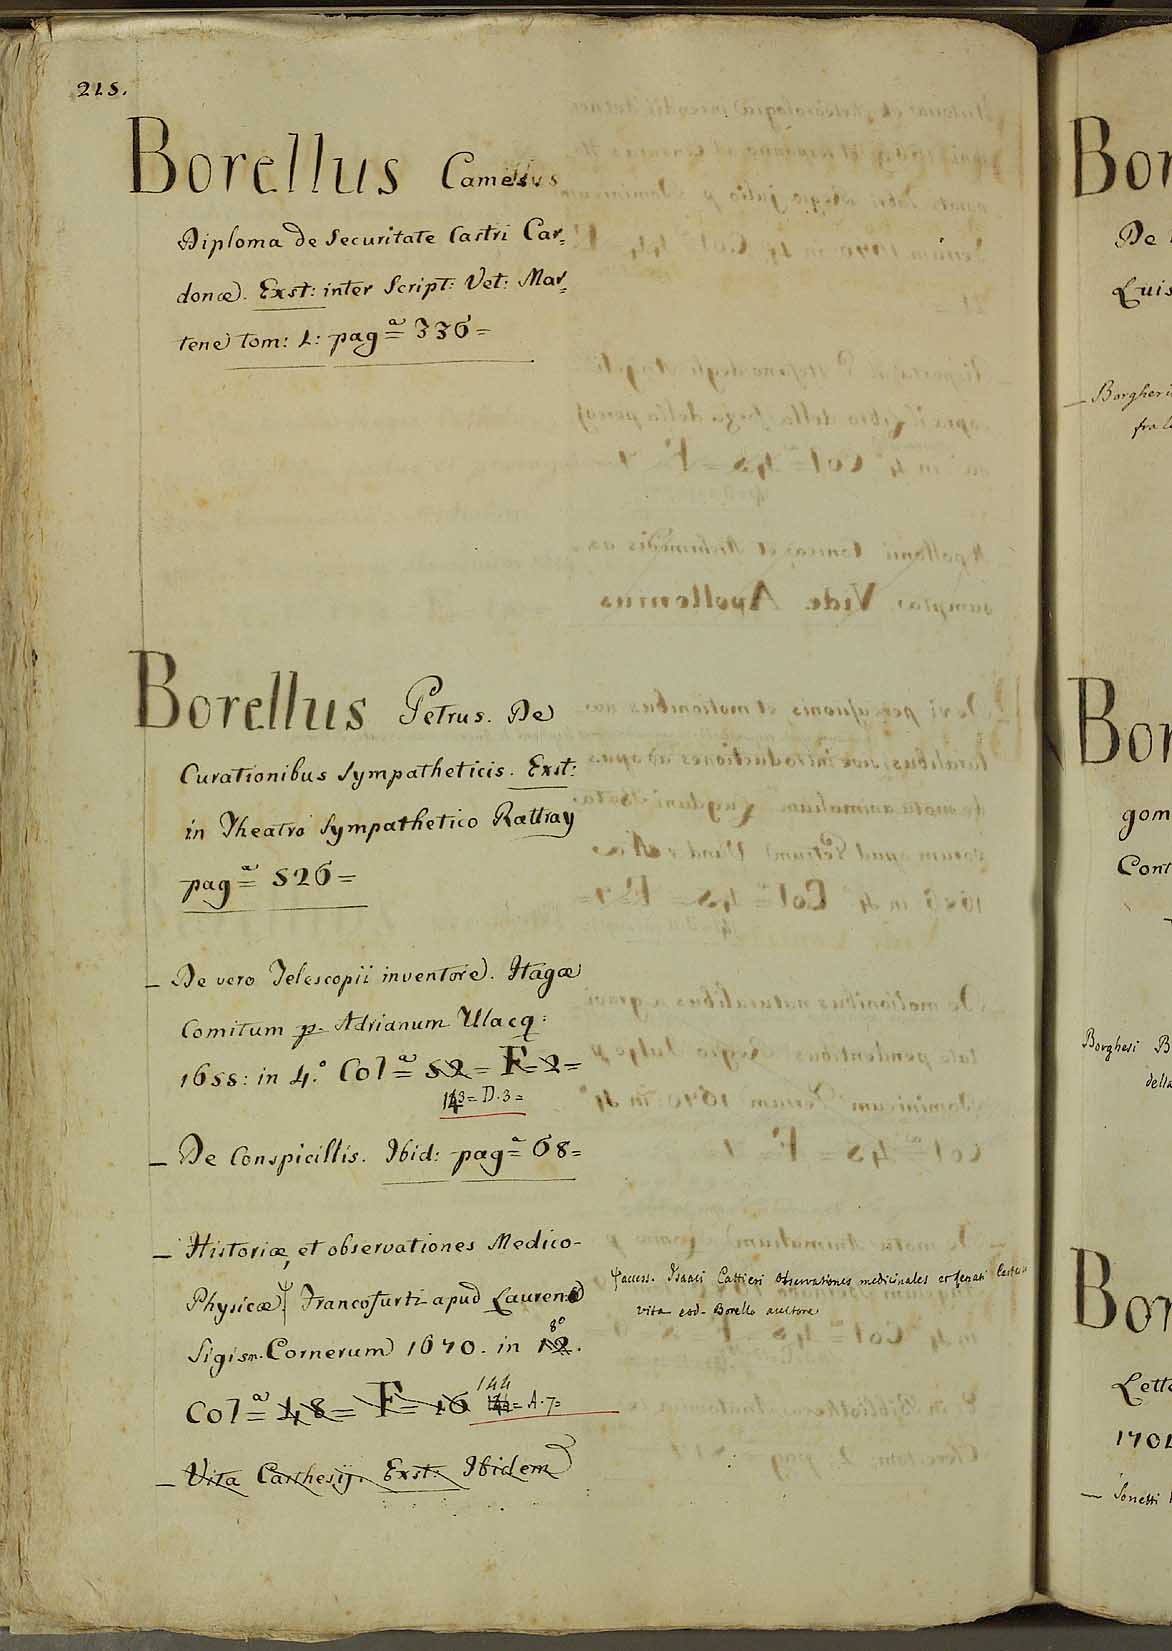 215.
Borellus Camesus
Diploma de Securitate Castri Car=
donæ. Exst: inter Script: Vet: Mar=
tene tom: 1: pagª= 336=
Borellus Petrus. De
Curationibus Sympatheticis. Exst:
in Theatro Sympathetico Rattray
pagª= 526=
— De vero Telescopii inventore. Hagæ
Comitum p. Adrianum Ulacq:
1655: in 4.º Colª= 52= F= 2=
143= D.3=
— De Conspicillis. Ibid: pagª= 68=
— Historiæ, et observationes Medico-
Physicæ Francofurti apud Lauren:
8º
Sigism. Cornerum 1670. in 12.
144
Colª= 48= F= 16 = A.7=
— Vita Carthesij. Exst: Ibidem
access. Isaaci Cattieri Observationes medicinales et Renati Cartesii
vita eod. Borello auctore
Bor
De
Luis
— Borgheri
fra l
Bor
gom
Cont
Borghesi B
della
Bor
Lett
1701
— Sonetti